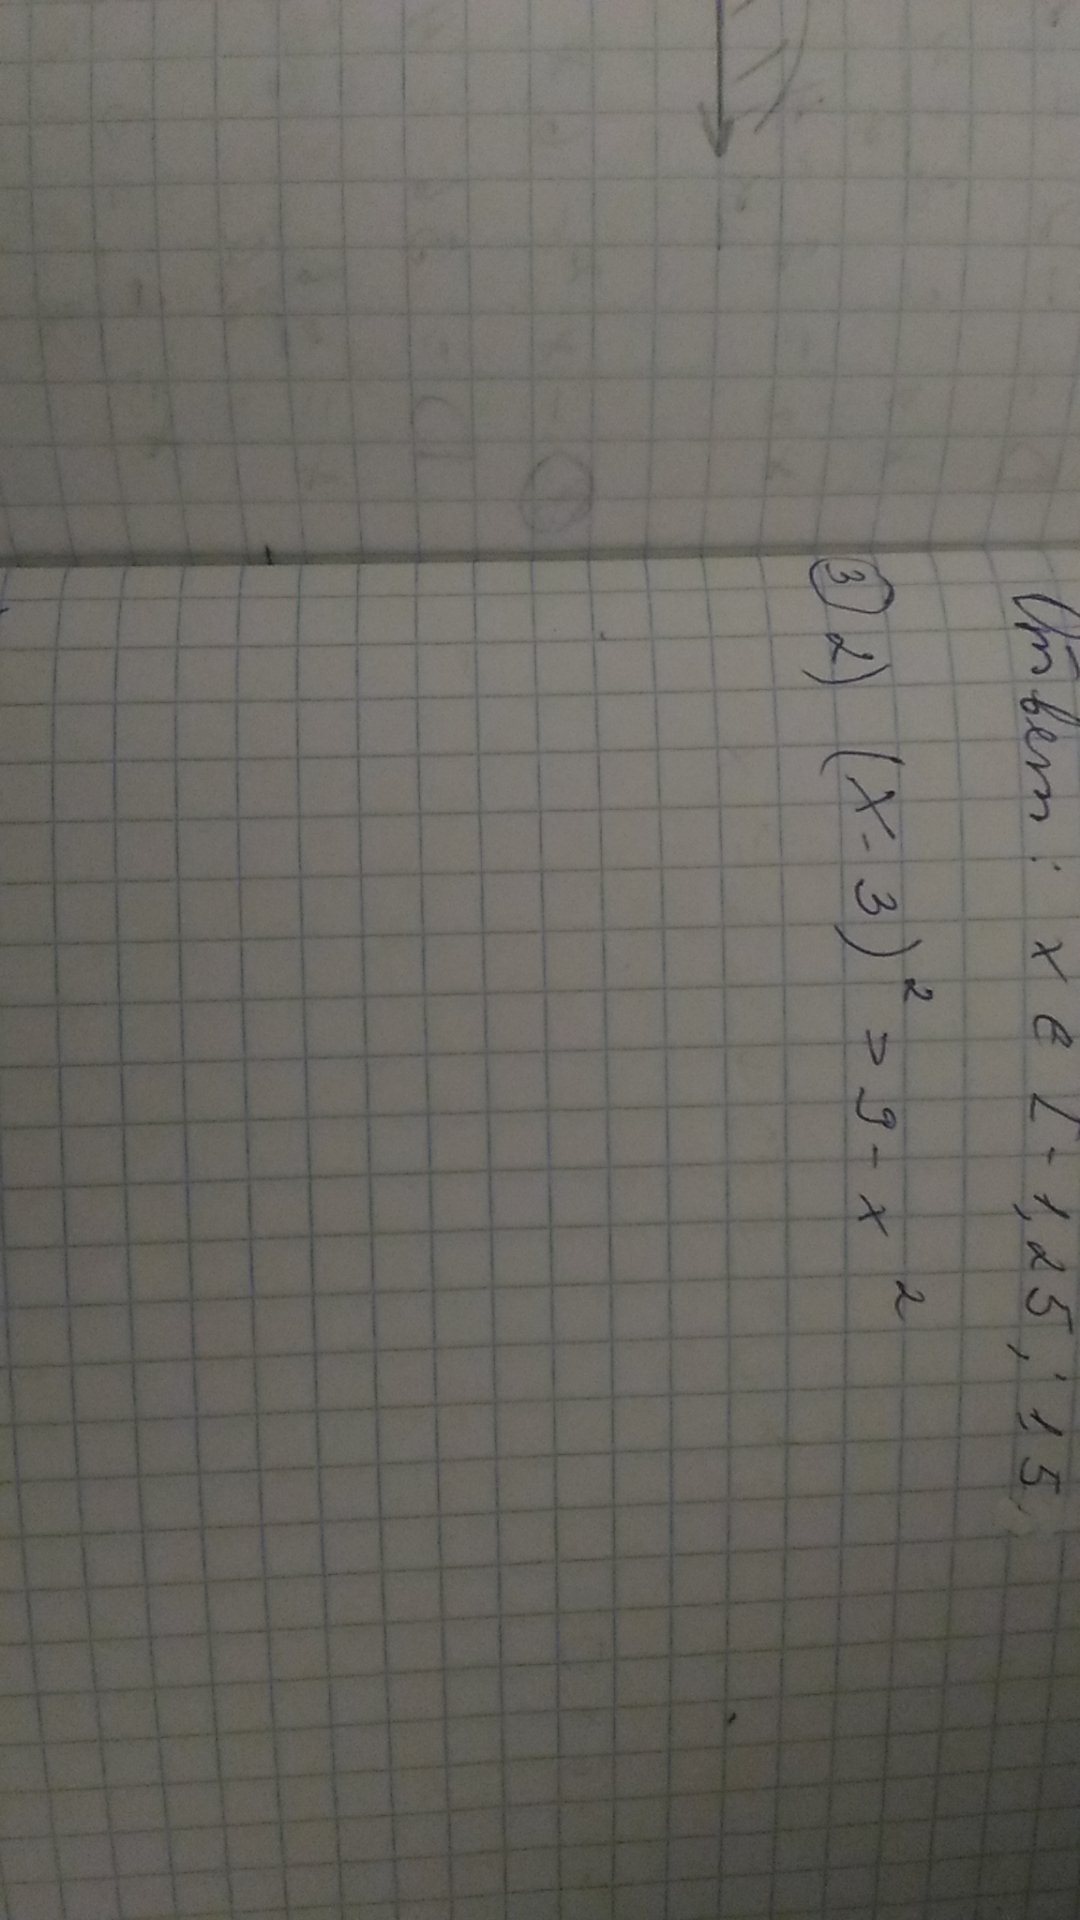 Ответ: x є [-1,25; 15,
③ 2) (x-3)² > 9 - x²